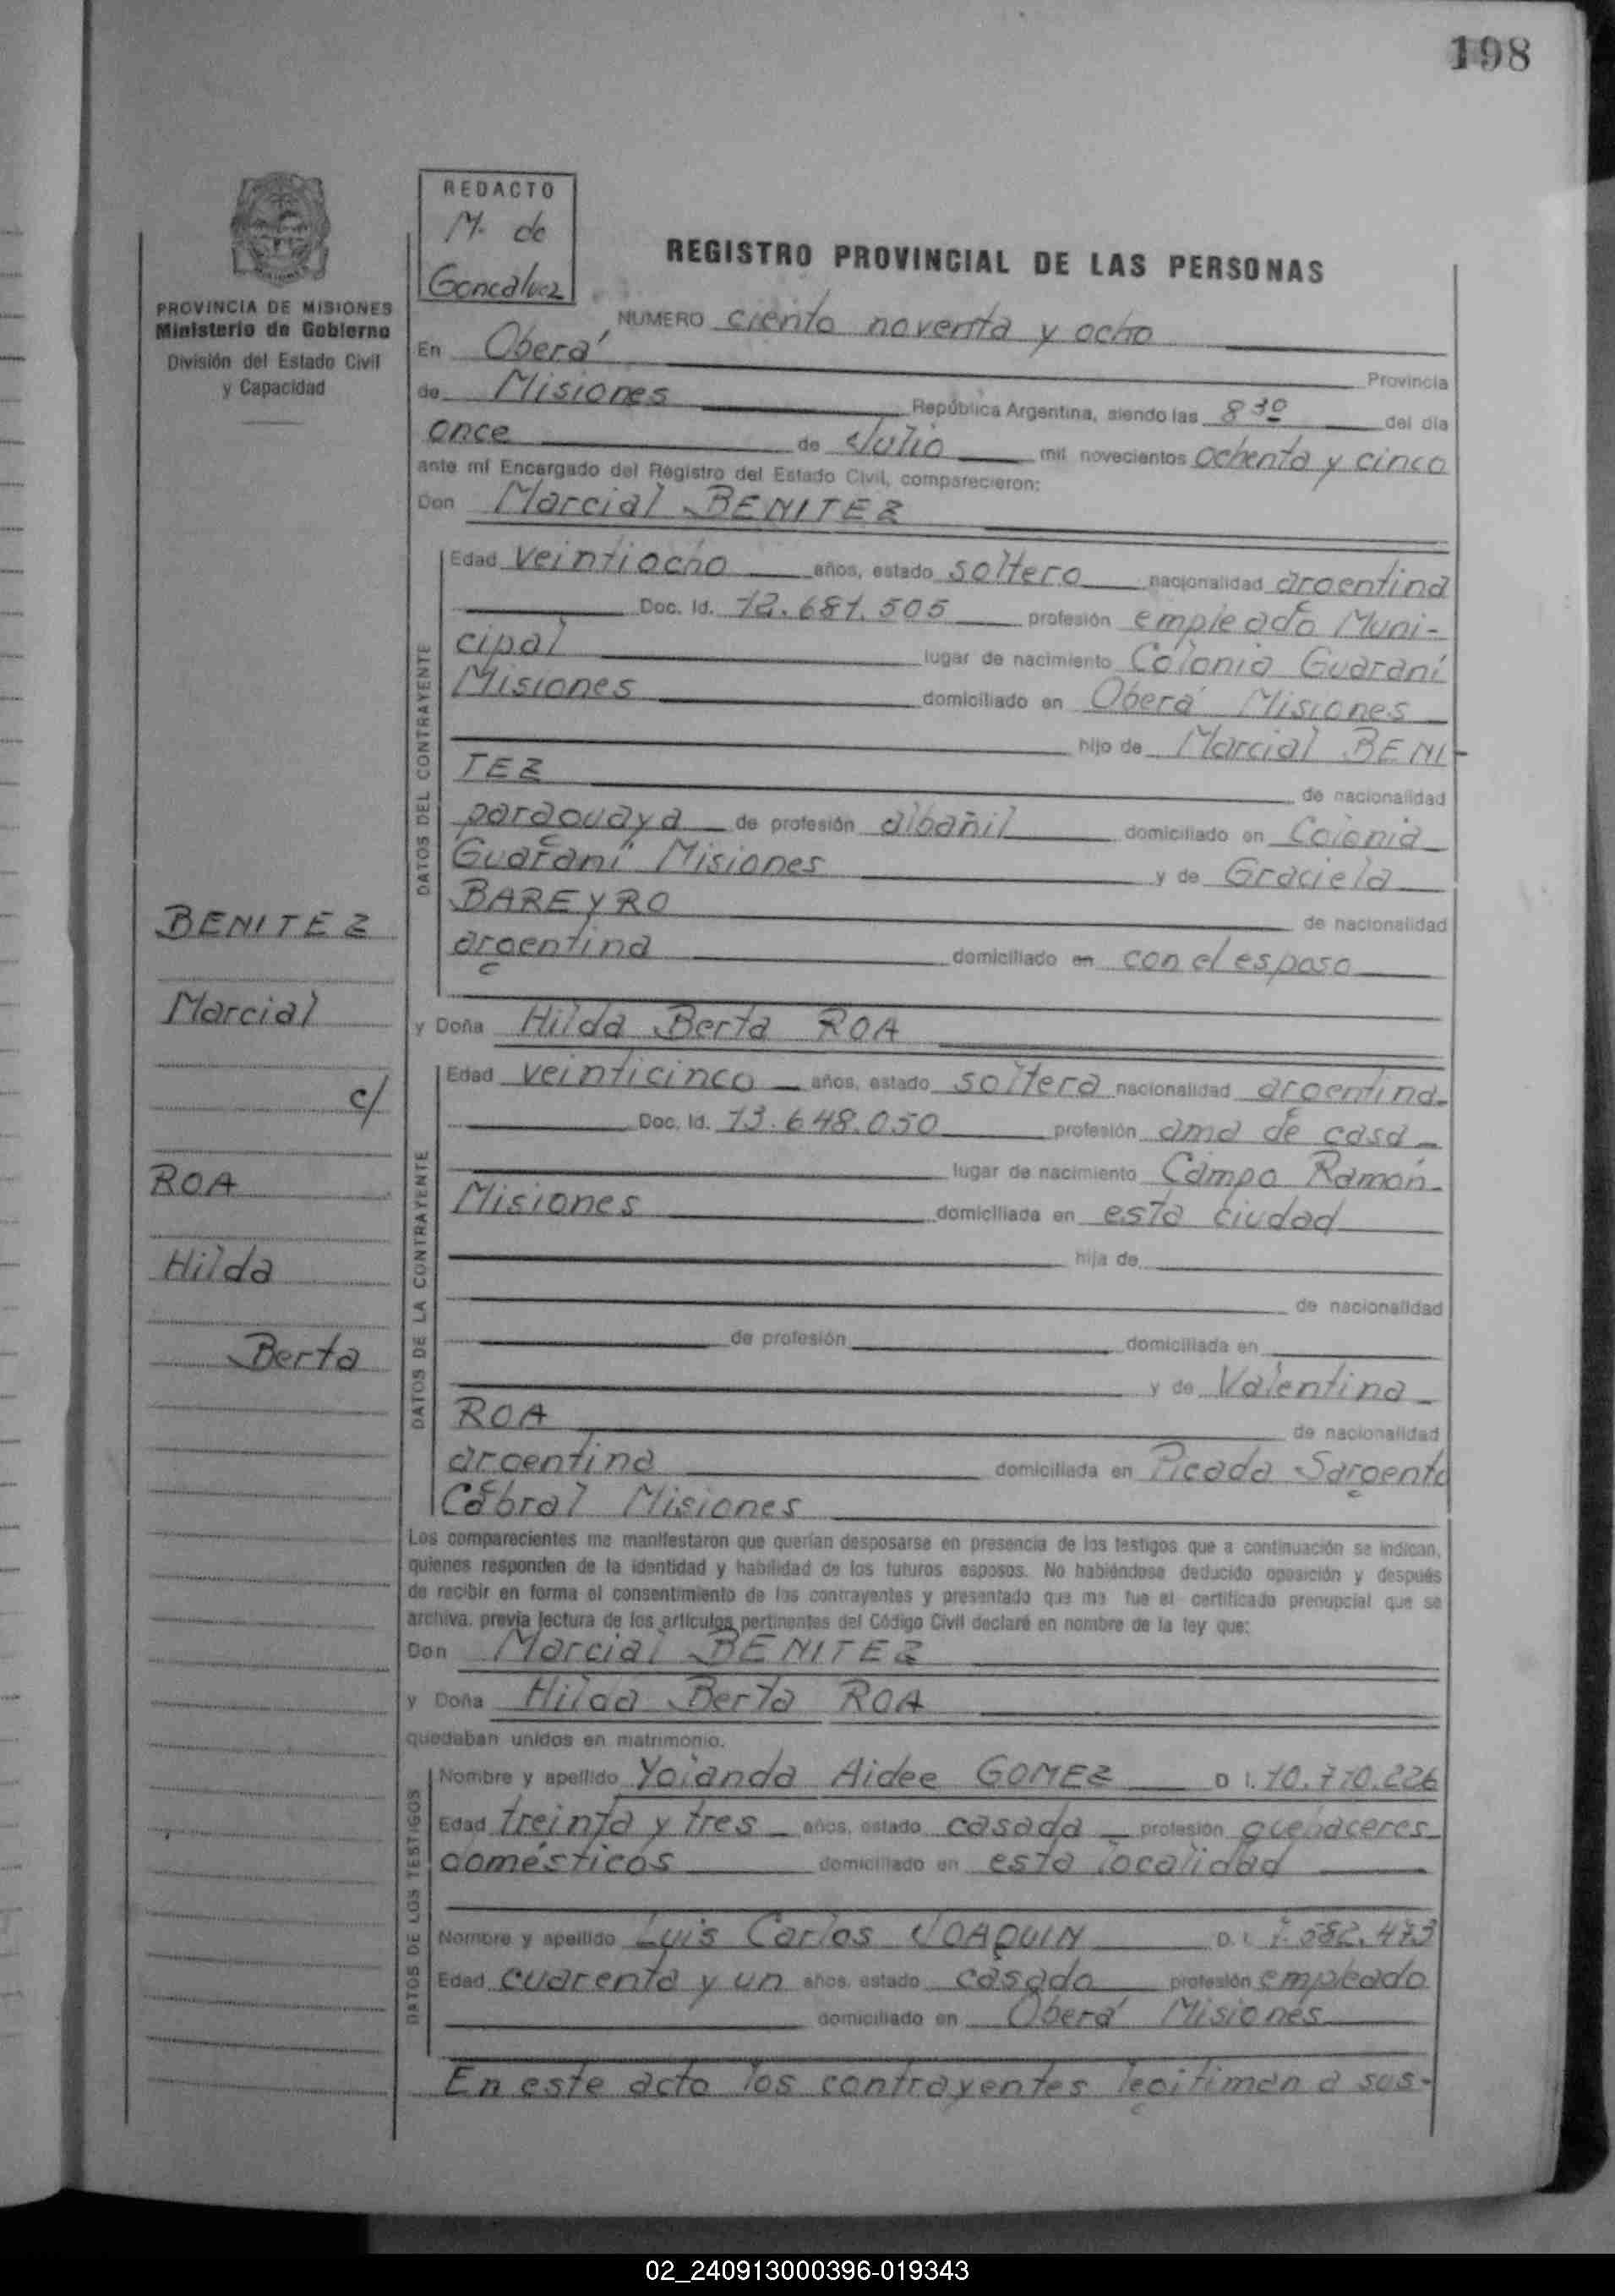 198
REDACTO
M. de
Goncalvez
REGISTRO PROVINCIAL DE LAS PERSONAS
PROVINCIA DE MISIONES
Ministerio de Gobierno
División del Estado Civil
y Capacidad
NUMERO ciento noventa y ocho
En Oberá Provincia
de Misiones República Argentina, siendo las 8 30 del día
once de Julio mil novecientos ochenta y cinco
ante mí Encargado del Registro del Estado Civil, comparecieron:
Don Marcial BENITEZ
DATOS DEL CONTRAYENTE
Edad veintiocho años, estado soltero nacionalidad argentina
Doc. Id. 12.681.505 profesión empleado Muni-
cipal lugar de nacimiento Colonia Guaraní
Misiones domiciliado en Oberá Misiones
hijo de Marcial BENI-
TEZ de nacionalidad
paraguaya de profesión albañil domiciliado en Colonia
Guaraní Misiones y de Graciela
BAREYRO de nacionalidad
argentina domiciliado en con el esposo
y Doña Hilda Berta ROA
BENITEZ
Marcial
c/
ROA
Hilda
Berta
DATOS DE LA CONTRAYENTE
Edad veinticinco años, estado soltera nacionalidad argentina
Doc. Id. 13.648.050 profesión ama de casa
lugar de nacimiento Campo Ramón
Misiones domiciliada en esta ciudad
hija de
de nacionalidad
de profesión domiciliada en
y de Valentina
ROA de nacionalidad
argentina domiciliada en Picada Sargento
Cabral Misiones
Los comparecientes me manifestaron que querían desposarse en presencia de los testigos que a continuación se indican,
quienes responden de la identidad y habilidad de los futuros esposos. No habiéndose deducido oposición y después
de recibir en forma el consentimiento de los contrayentes y presentado que me fue el certificado prenupcial que se
archiva, previa lectura de los artículos pertinentes del Código Civil declaré en nombre de la ley que:
Don Marcial BENITEZ
y Doña Hilda Berta ROA
quedaban unidos en matrimonio.
DATOS DE LOS TESTIGOS
Nombre y apellido Yolanda Aidee GOMEZ D I. 10.770.226
Edad treinta y tres años, estado casada profesión quehaceres
domésticos domiciliado en esta localidad
Nombre y apellido Luis Carlos JOAQUIN D. I. 7.582.473
Edad cuarenta y un años, estado casado profesión empleado
domiciliado en Oberá Misiones
En este acto los contrayentes legitiman a sus-
02_240913000396-019343